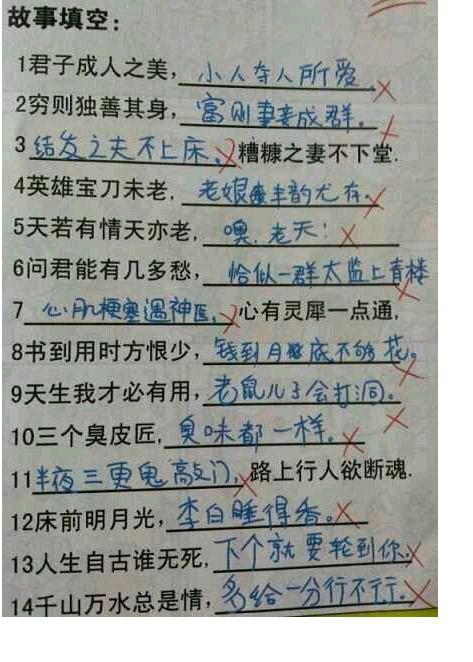 故事填空:
1君子成人之美, 小人夺人所爱.
2穷则独善其身, 富则妻妾成群。
3 结发之夫不上床, 糟糠之妻不下堂.
4英雄宝刀未老, 老娘丰韵尤存。
5天若有情天亦老, 噢.老天!
6问君能有几多愁, 恰似一群太监上青楼
7 心肌梗塞遇神医, 心有灵犀一点通,
8书到用时方恨少, 钱到月底不够花。
9天生我才必有用, 老鼠儿子会打洞。
10三个臭皮匠, 臭味都一样。
11半夜三更鬼敲门, 路上行人欲断魂.
12床前明月光, 李白睡得香。
13人生自古谁无死, 下个就要轮到你.
14千山万水总是情, 多给一分行不行.